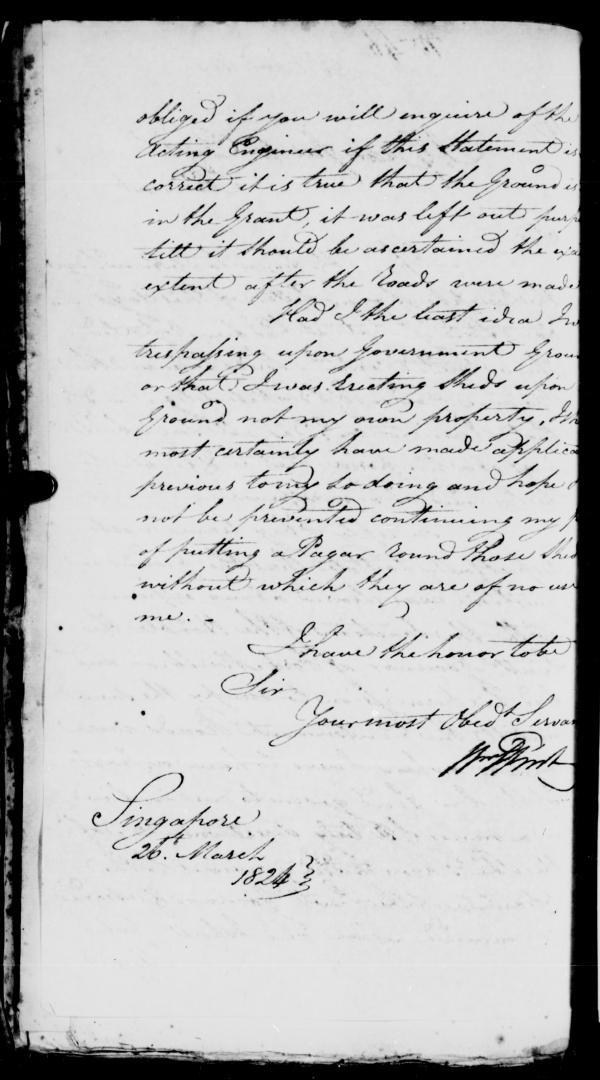 obliged if you will enquire of the
Acting Engineer if this Statement is
correct it is true that the Ground is
in the Grant, it was left out purp
till it should be ascertained the exa
extent after the Roads were made
Had I the least idea I w
trespassing upon Government Groun
or that I was Erecting Sheds upon
Ground not my own property, I sh
most certainly have made applica
previous to my so doing and hope
not be prevented continuing my p
of putting a Pagar round those Shed
without which they are of no us
me. -
I have the honor to be
Sir
Your most Obedt. Servan
Wm Flint
Singapore
26th. March
1824